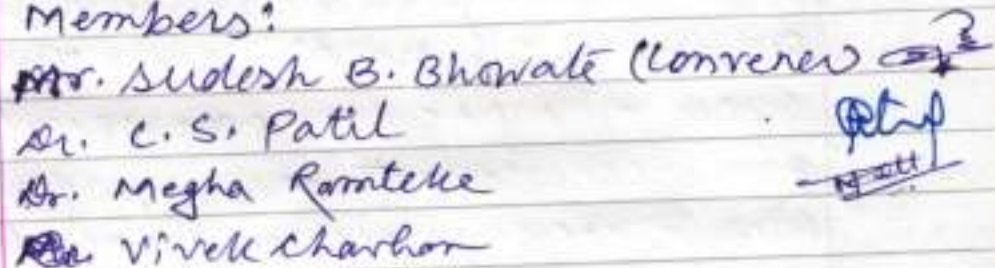 Members:
Mr. Sudesh B. Bhowate (Convener)
Dr. C. S. Patil
Dr. Megha Ramteke
Vivek Chavhan